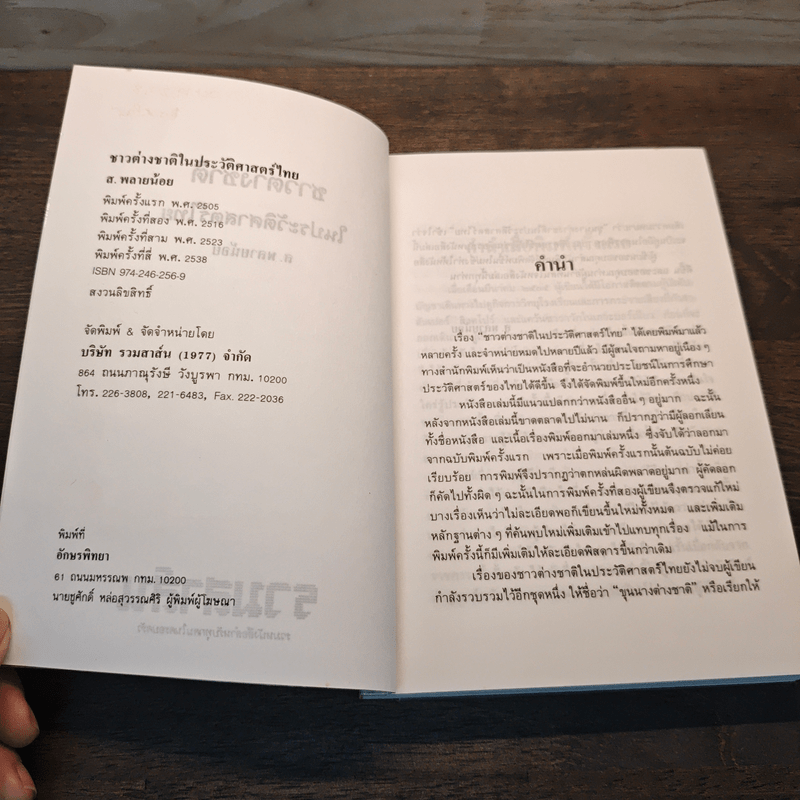 ชาวต่างชาติในประวัติศาสตร์ไทย
ส. พลายน้อย
พิมพ์ครั้งแรก พ.ศ. 2505
พิมพ์ครั้งที่สอง พ.ศ. 2516
พิมพ์ครั้งที่สาม พ.ศ. 2523
พิมพ์ครั้งที่สี่ พ.ศ. 2538
ISBN 974-246-256-9
สงวนลิขสิทธิ์
จัดพิมพ์ & จัดจำหน่ายโดย
บริษัท รวมสาส์น (1977) จำกัด
864 ถนนภาณุรังษี วังบูรพา กทม. 10200
โทร. 226-3808, 221-6483, Fax. 222-2036
พิมพ์ที่
อักษรพิทยา
61 ถนนมหรรณพ กทม. 10200
นายชูศักดิ์ หล่อสุวรรณศิริ ผู้พิมพ์ผู้โฆษณา
คำนำ
เรื่อง "ชาวต่างชาติในประวัติศาสตร์ไทย" ได้เคยพิมพ์มาแล้ว
หลายครั้ง และจำหน่ายหมดไปหลายปีแล้ว มีผู้สนใจถามหาอยู่เนือง ๆ
ทางสำนักพิมพ์เห็นว่าเป็นหนังสือที่จะอำนวยประโยชน์ในการศึกษา
ประวัติศาสตร์ของไทยได้ดีขึ้น จึงได้จัดพิมพ์ขึ้นใหม่อีกครั้งหนึ่ง
หนังสือเล่มนี้มีแนวแปลกกว่าหนังสืออื่น ๆ อยู่มาก ฉะนั้น
หลังจากหนังสือเล่มนี้ขาดตลาดไปไม่นาน ก็ปรากฏว่ามีผู้ลอกเลียน
ทั้งชื่อหนังสือ และเนื้อเรื่องพิมพ์ออกมาเล่มหนึ่ง ซึ่งจับได้ว่าลอกมา
จากฉบับพิมพ์ครั้งแรก เพราะเมื่อพิมพ์ครั้งแรกนั้นต้นฉบับไม่ค่อย
เรียบร้อย การพิมพ์จึงปรากฏว่าตกหล่นผิดพลาดอยู่มาก ผู้คัดลอก
ก็คัดไปทั้งผิด ๆ ฉะนั้นในการพิมพ์ครั้งที่สองผู้เขียนจึงตรวจแก้ใหม่
บางเรื่องเห็นว่าไม่ละเอียดพอก็เขียนขึ้นใหม่ทั้งหมด และเพิ่มเติม
หลักฐานต่าง ๆ ที่ค้นพบใหม่เพิ่มเติมเข้าไปแทบทุกเรื่อง แม้ในการ
พิมพ์ครั้งนี้ก็มีเพิ่มเติมให้ละเอียดพิสดารขึ้นกว่าเดิม
เรื่องของชาวต่างชาติในประวัติศาสตร์ไทยยังไม่จบผู้เขียน
กำลังรวบรวมไว้อีกชุดหนึ่ง ให้ชื่อว่า "ขุนนางต่างชาติ" หรือเรียกให้